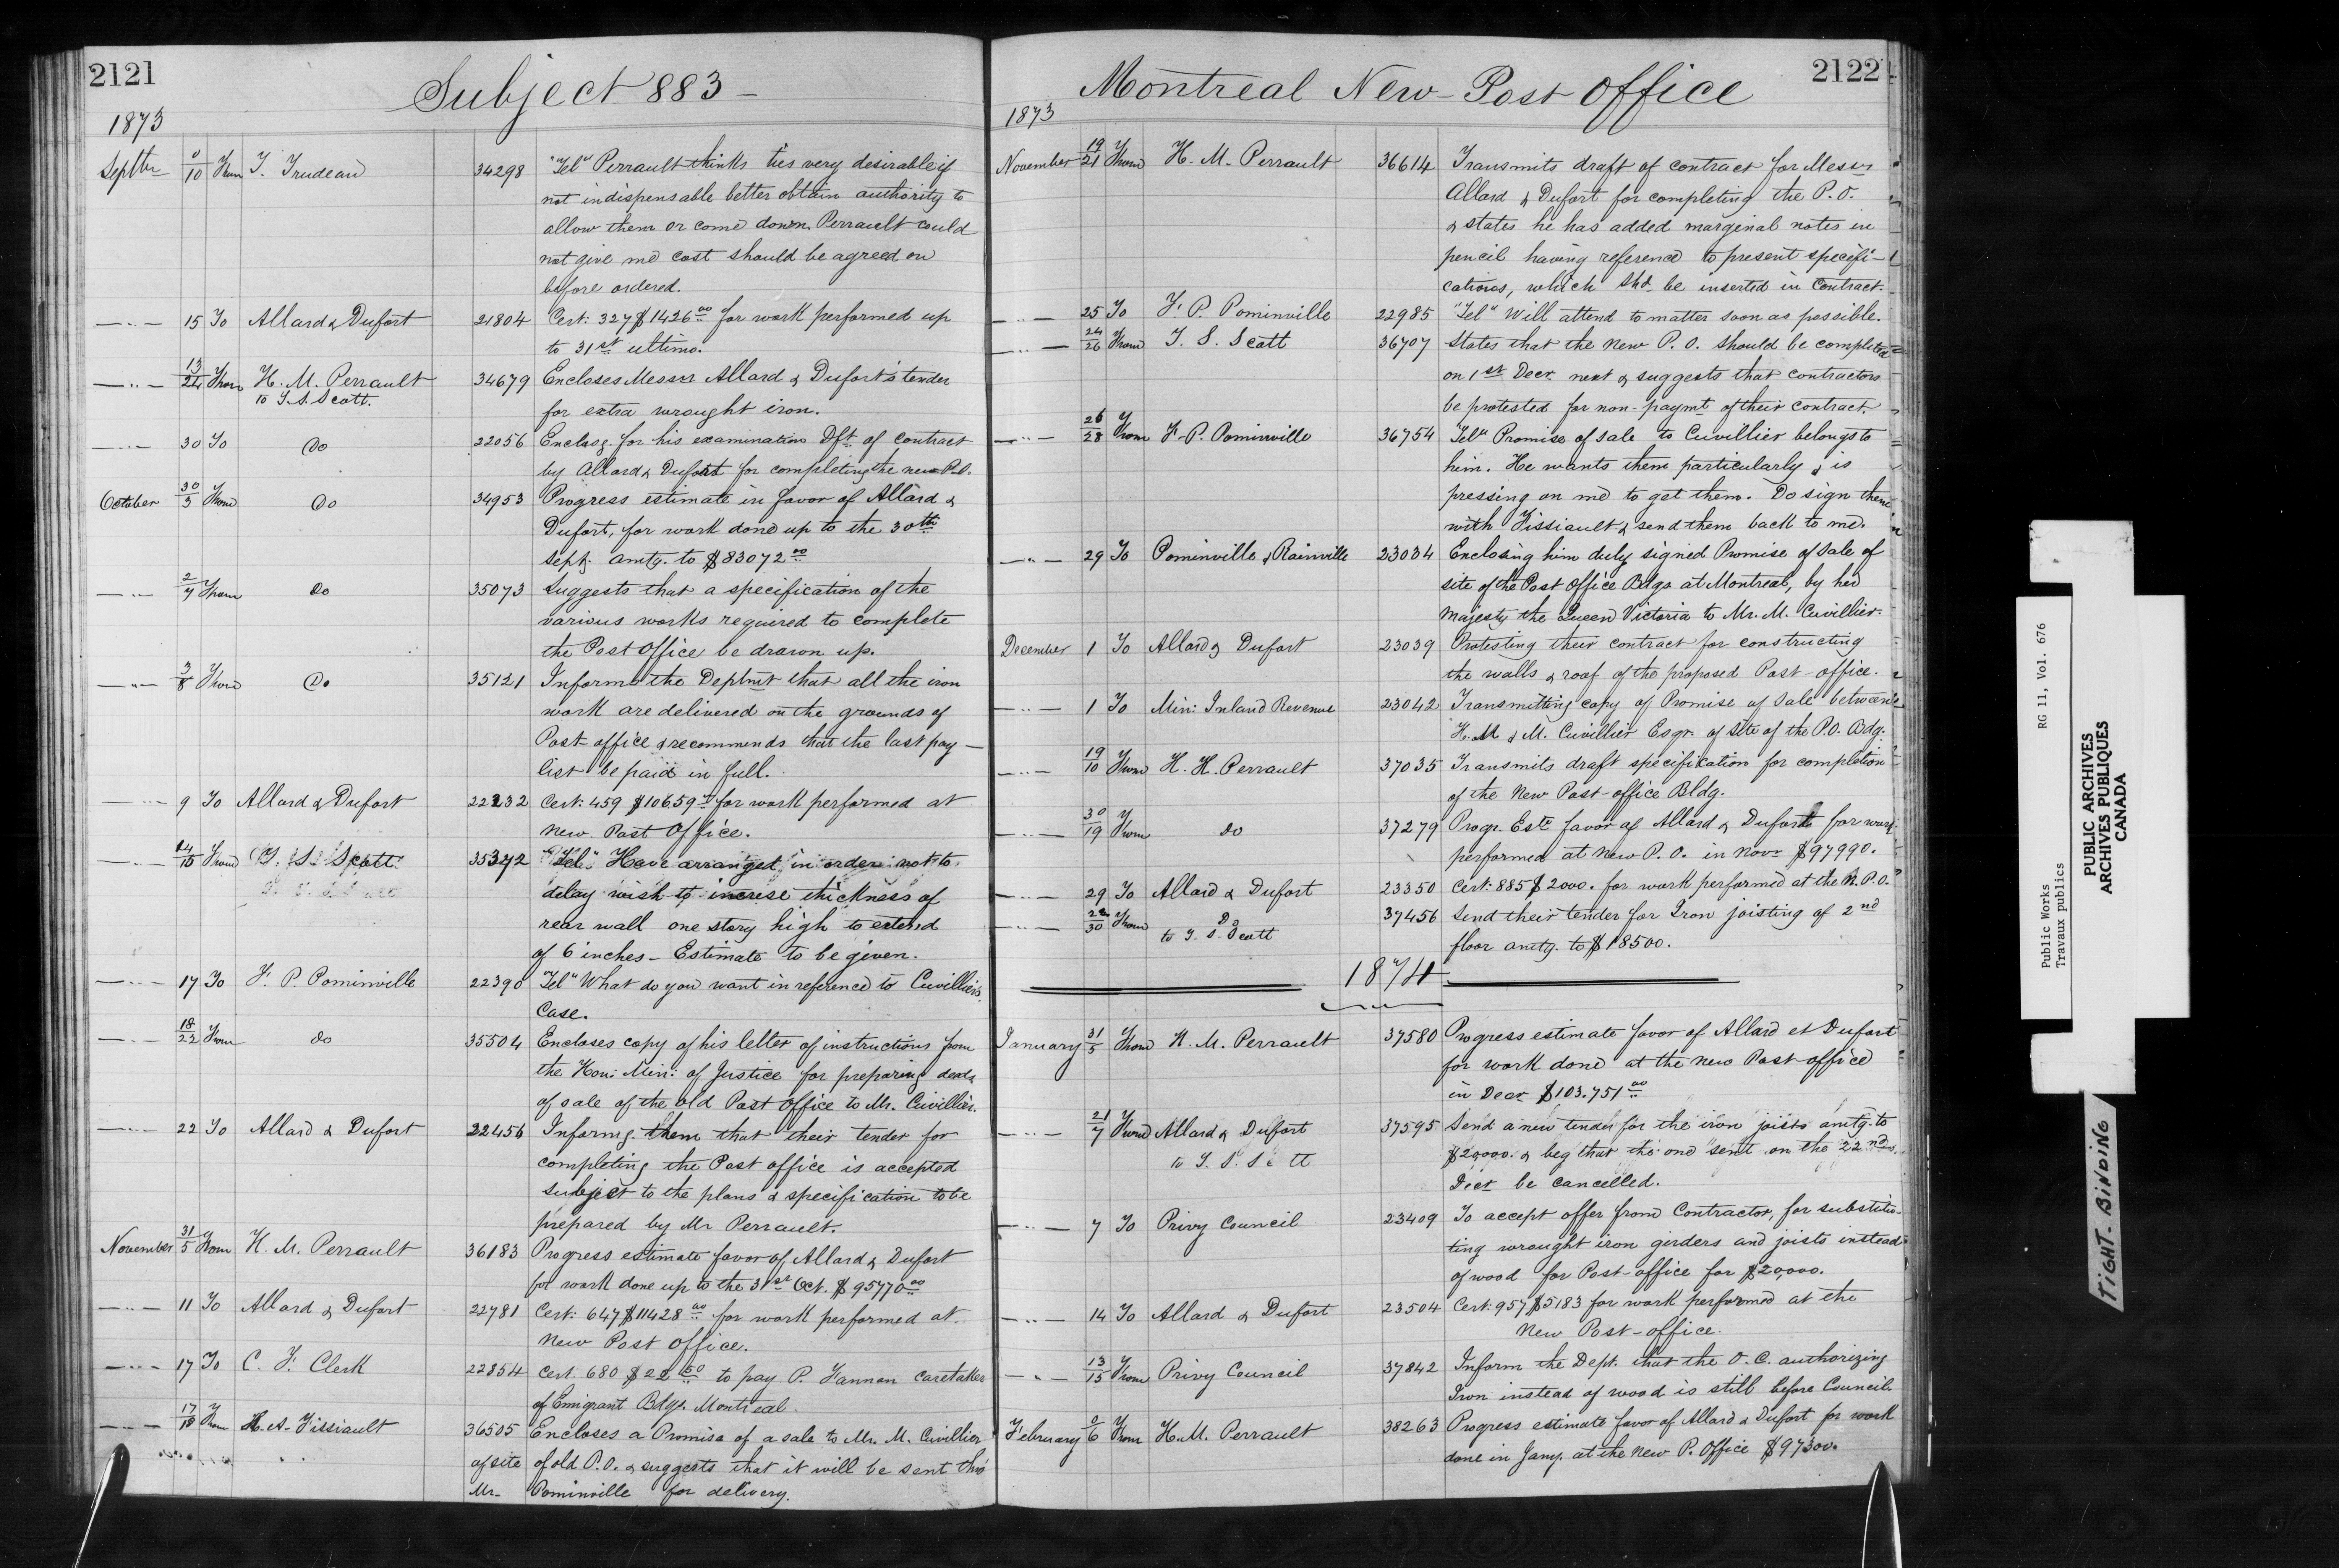 2121
Subject 883 -
1873
Septbr 9/10 From T. Trudeau 34298 "Tel" Perrault thinks ties very desirable if
not indispensable better obtain authority to
allow them or come down. Perrault could
not give me cost should be agreed on
before ordered.
—"— 15 To Allard & Dufort 21804 Cert: 327 $1426 00 for work performed up
to 31st ultimo.
—"— 13/24 From H. M. Perrault 34679 Encloses Messrs Allard & Dufort's tender
to T. S. Scott. for extra wrought iron.
—"— 30 To Do 22056 Enclosg. for his examination Dft. of contract
by Allard & Dufort for completing the new P.O.
October 30/3 From Do 34953 Progress estimate in favor of Allard &
Dufort, for work done up to the 30th
Sept. amtg. to $83072 00
—"— 2/7 From Do 35073 Suggests that a specification of the
various works required to complete
the Post Office be drawn up.
—"— 3/8 From Do 35121 Informs the Deptmt that all the iron
work are delivered on the grounds of
Post office & recommends that the last pay-
list be paid in full.
—"— 9 To Allard & Dufort 22232 Cert: 459 $10659 for work performed at
new Post Office.
—"— 14/15 From T. S. Scott 35372 "Tel" Have arranged in order not to
delay wish to increse thickness of
rear wall one story high to extend
of 6 inches - Estimate to be given.
—"— 17 To F. P. Pominville 22390 "Tel" What do you want in reference to Cuvillier's
Case.
—"— 18/22 From do 35504 Encloses copy of his letter of instructions from
the Hon: Min: of Justice for preparing deeds
of sale of the old Post Office to Mr. Cuvillier.
—"— 22 To Allard & Dufort 22456 Informg. them that their tender for
completing the Post office is accepted
subject to the plans & specification to be
prepared by Mr Perrault.
November 31/5 From H. M. Perrault 36183 Progress estimate favor of Allard & Dufort
for work done up to the 31st Oct. $95770 00
—"— 11 To Allard & Dufort 22781 Cert: 647 $11428 00 for work performed at
New Post Office.
—"— 17 To C. F. Clerk 22854 Cert. 680 $22 50 to pay P. Fannon caretaker
of Emigrant Bldgs. Montreal.
—"— 17/18 From H. A. Fissiault 36505 Encloses a Promise of a sale to Mr. M. Cuvillier
of site of old P.O. & suggests that it will be sent thro'
Mr- Pominville for delivery.
2122
Montreal New-Post Office
1873
November 19/21 From H. M. Perrault 36614 Transmits draft of contract for Messrs
Allard & Dufort for completing the P. O.
& states he has added marginal notes in
pencil having reference to present specifi-
cations, which shd. be inserted in Contract.
—"— 25 To F. P. Pominville 22985 "Tel" Will attend to matter soon as possible.
—"— 24/26 From T. S. Scott 36707 States that the new P. O. should be completed
on 1st Decr. next & suggests that contractors
be protested for non-paymt of their contract.
—"— 26/28 From F. P. Pominville 36754 "Tel" Promise of sale to Cuvillier belongs to
him. He wants them particularly & is
pressing on me to get them. Do sign them
with Fissiault & send them back to me.
—"— 29 To Pominville & Rainville 23034 Enclosing him duly signed Promise of sale of
site of the Post Office Bldgs at Montreal, by her
Majesty the Queen Victoria to Mr. M. Cuvillier.
December 1 To Allard & Dufort 23039 Protesting their contract for constructing
the walls & roof of the proposed Post-office.
—"— 1 To Min: Inland Revenue 23042 Transmitting copy of Promise of sale between
H. M & M. Cuvillier Esqr. of site of the P.O. Bdg.
—"— 19/10 From H. H. Perrault 37035 Transmits draft specification for completion
of the New Post-office Bldg.
—"— 30/19 From do 37279 Progr. Este favor of Allard & Dufort for work
performed at new P. O. in Novr $97990.
—"— 29 To Allard & Dufort 23350 Cert: 885 $2000. for work performed at the N. P. O.
—"— 22/30 From Do 37456 Send their tender for Iron joisting of 2nd
to T. S. Scott floor amtg. to $18500.
1874
January 31/5 From H. M. Perrault 37580 Progress estimate favor of Allard et Dufort
for work done at the new Post-office
in Decr $103.751 00
—"— 21/7 From Allard & Dufort 37595 Send a new tender for the iron joists amtg. to
to T. S. Scott $20,000. & beg that the one sent on the 22nd
Decr be cancelled.
—"— 7 To Privy Council 23409 To accept offer from Contractor, for substitu-
ting wrought iron girders and joists instead
of wood for Post-office for $20,000.
—"— 14 To Allard & Dufort 23504 Cert: 957 $5183 for work performed at the
New Post-office.
—"— 13/15 From Privy Council 37842 Inform the Dept. that the O. C. authorizing
Iron instead of wood is still before Council.
February 2/6 From H. M. Perrault 38263 Progress estimate favor of Allard & Dufort for work
done in Jany. at the New P. Office $97300.
RG 11, Vol. 676
Public Works
Travaux publics
PUBLIC ARCHIVES
ARCHIVES PUBLIQUES
CANADA
TIGHT-BINDING